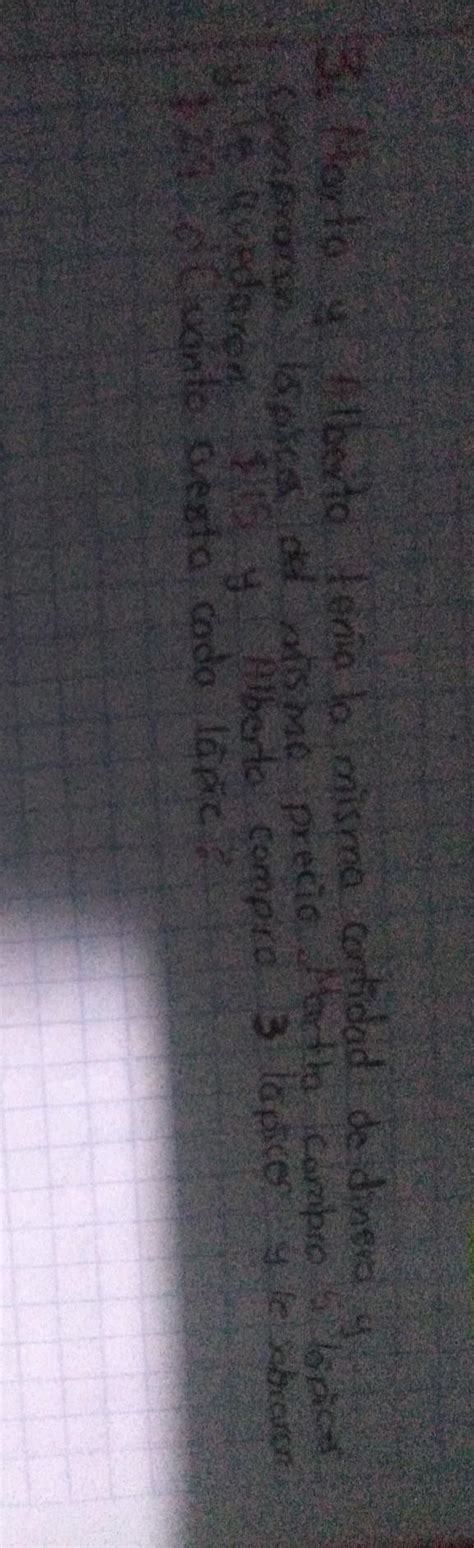 3. Marta y Alberto tenia la misma cantidad de dinero y
compraron lapices del mismo precio Martha compro 5 lapices
y le quedaron $15 y Alberto compro 3 lapices y le sobraron
¿Cuanto cuesta cada lápic?